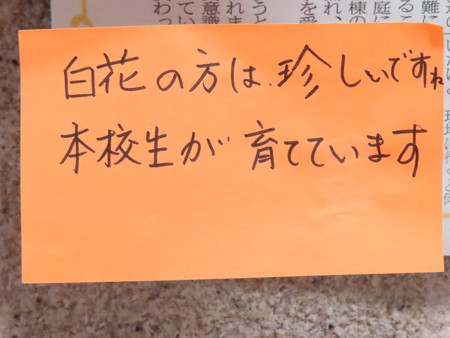 白花の方は珍しいですね
本校生が育てています